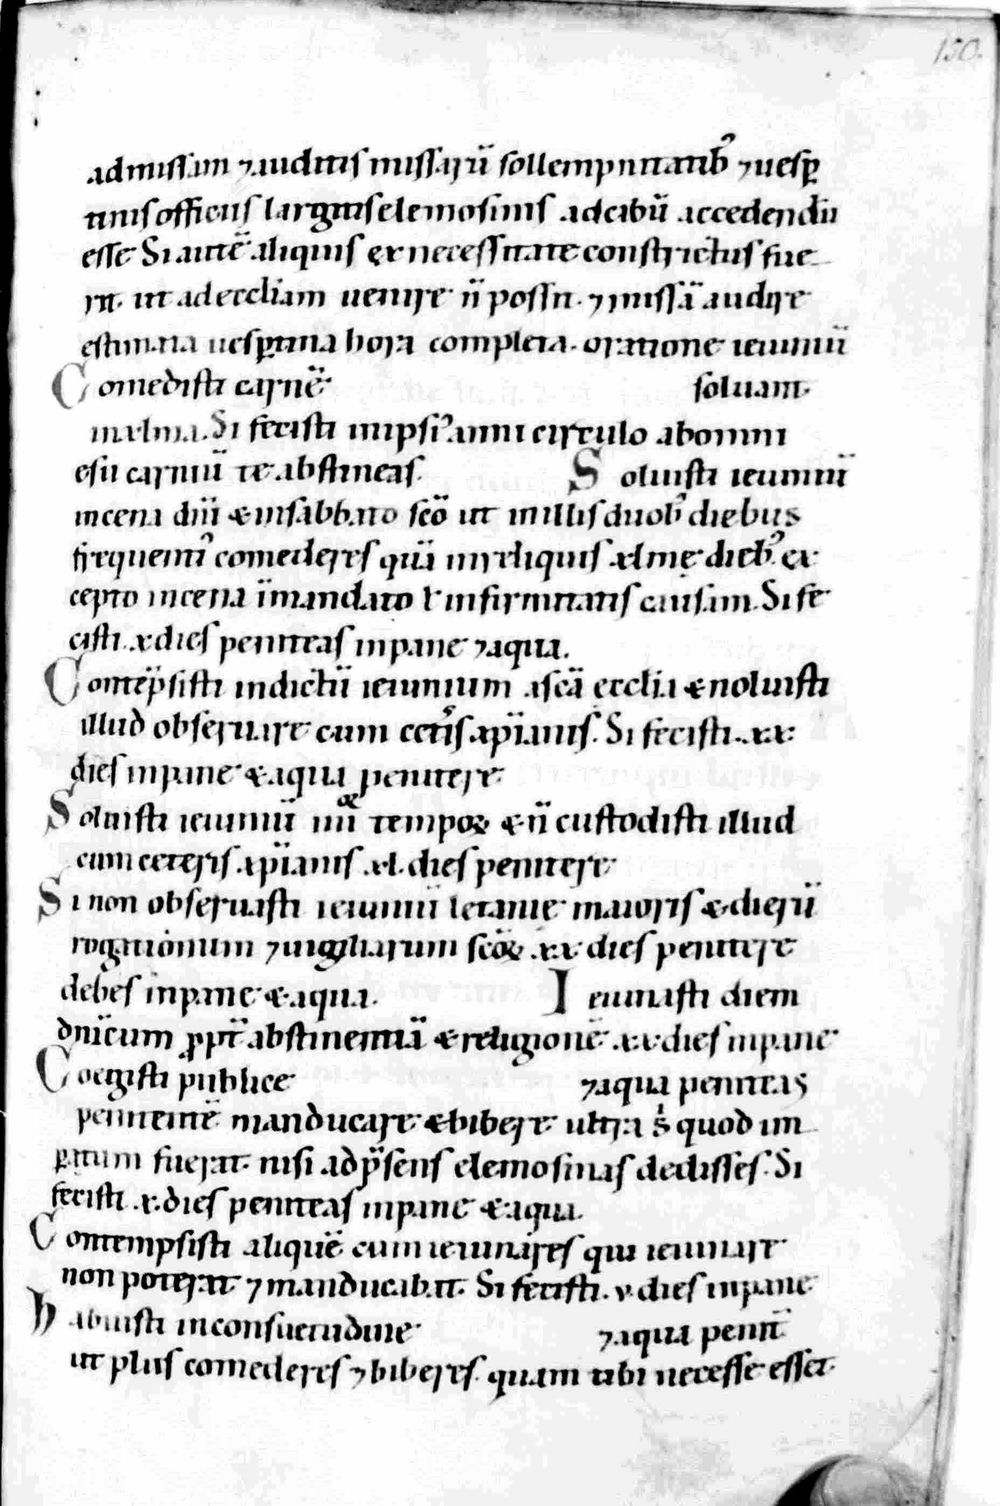 150.
admissam ⁊auditis missarũ sollempnitatibꝰ ⁊uesꝑ
tinis officiis largitis elemosinis ad cibũ accedendũ
esse Si autẽ aliquis ex necessitate constrictus fue
rit. ut ad eccliam uenire ñ possit. ⁊missã audire
estimata uesꝑtina hora completa. oratione ieiuniũ
soluant.
Comedisti carnẽ
in xlma. Si fecisti in ipsiꝰ anni circulo ab omni
esu carniũ te abstineas.
Soluisti ieiuniũ
in cena dñi & in sabbato scõ ut in illis duobꝰ diebus
frequentiꝰ comederes quã in reliquis xlmę diebꝰ. ex
cepto in cena ĩ mandato ł infirmitatis causam. Si fe
cisti .x dies peniteas in pane ⁊aqua.
Contẽpsisti indictũ ieiunium a scã ecclia & noluisti
illud obseruare cum cetĩs xp̃ianis. Si fecisti .xx.
dies in pane & aqua penitere
Soluisti ieiuniũ iiiiᵒʳ tempoꝝ & ñ custodisti illud
cum ceteris xp̃ianis .xl. dies penitere
Si non obseruasti ieiuniũ letanie maioris & dierũ
rogationum ⁊uigiliarum scõꝝ .xx dies penitere
debes in pane & aqua.
Ieiunasti diem
dnĩcum ꝓpt̃ abstinentiã & religionẽ .xx dies in pane
⁊aqua peniteas
Coegisti publice
penitentẽ manducare & bibere ultra s̉ quod im
ꝑatum fuerat. nisi ad p̃sens elemosinas dedisses. Si
fecisti .x. dies peniteas in pane & aqua.
Contempsisti aliquẽ cum ieiunares qui ieiunare
non poterat ⁊ manducabat. Si fecisti .v dies in pane
⁊aqua penit̃
Habuisti in consuetudine
ut plus comederes ⁊ biberes. quam tibi necesse esset.